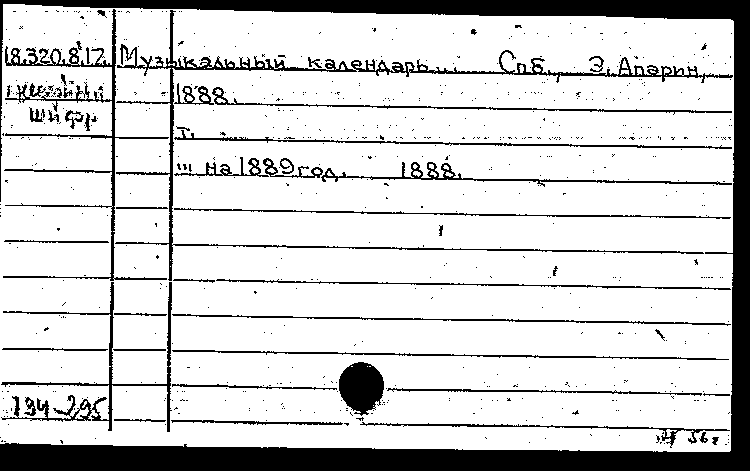 18.320.8.17. Музыкальный календарь... Спб., Э. Апарин,
1888.
шифр
т.
... на 1889 год. 1888.
134-295
56 г